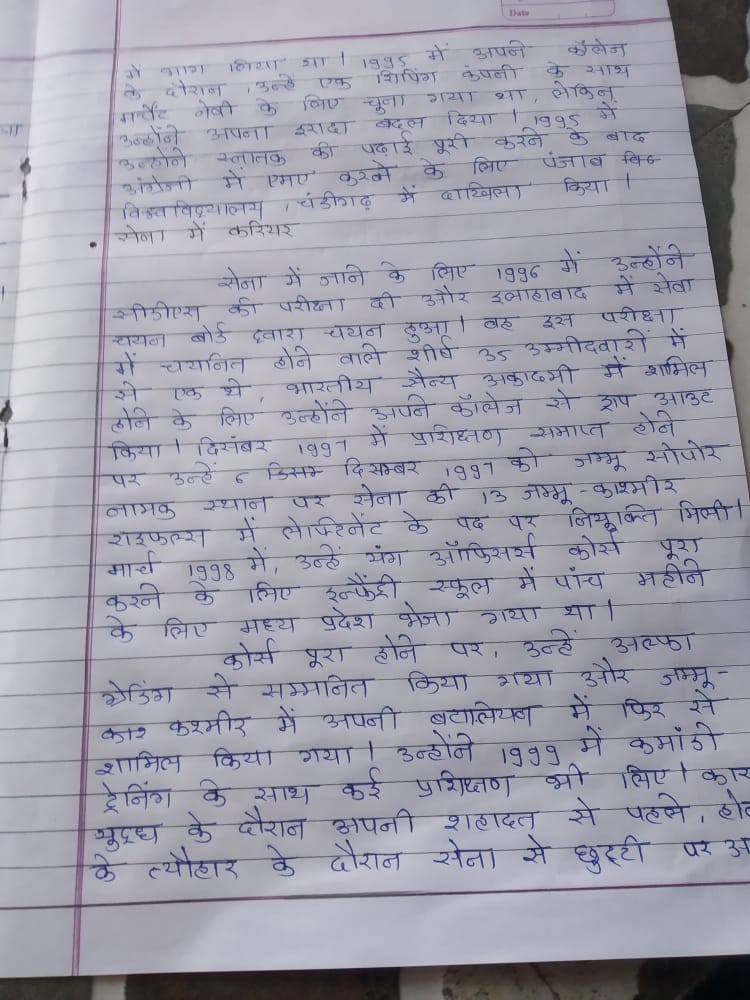 Date
में भाग लिया था। 1995 में अपने कॉलेज
के दौरान, उन्हें एक शिपिंग कंपनी के साथ
मर्चेंट नेवी के लिए चुना गया था, लेकिन
उन्होंने अपना इरादा बदल दिया। 1995 में
उन्होंने स्नातक की पढ़ाई पूरी करने के बाद
अंग्रेजी में एमए करने के लिए पंजाब
विश्वविद्यालय, चंडीगढ़ में दाखिला किया।
सेना में करियर
सेना में जाने के लिए 1996 में उन्होंने
सीडीएस की परीक्षा दी और इलाहाबाद में सेवा
चयन बोर्ड द्वारा चयन हुआ। वह इस परीक्षा
में चयनित होने वाले शीर्ष 35 उम्मीदवारों में
से एक थे, भारतीय सैन्य अकादमी में शामिल
होने के लिए उन्होंने अपने कॉलेज से ड्राप आउट
किया। दिसंबर 1997 में प्रशिक्षण समाप्त होने
पर उन्हें 6 दिसम्बर 1997 को जम्मू सोपोर
नामक स्थान पर सेना की 13 जम्मू-कश्मीर
राइफल्स में लेफ्टिनेंट के पद पर नियुक्ति मिली।
मार्च 1998 में, उन्हें यंग ऑफिसर्स कोर्स पूरा
करने के लिए इन्फैंट्री स्कूल में पाँच महीने
के लिए मध्य प्रदेश भेजा गया था।
कोर्स पूरा होने पर, उन्हें अल्फा
ग्रेडिंग से सम्मानित किया गया और जम्मू-
कश्मीर में अपनी बटालियन में फिर से
शामिल किया गया। उन्होंने 1999 में कमांडो
ट्रेनिंग के साथ कई प्रशिक्षण भी लिए। कार
युद्ध के दौरान अपनी शहादत से पहले, हो
के त्यौहार के दौरान सेना से छुट्टी पर अ